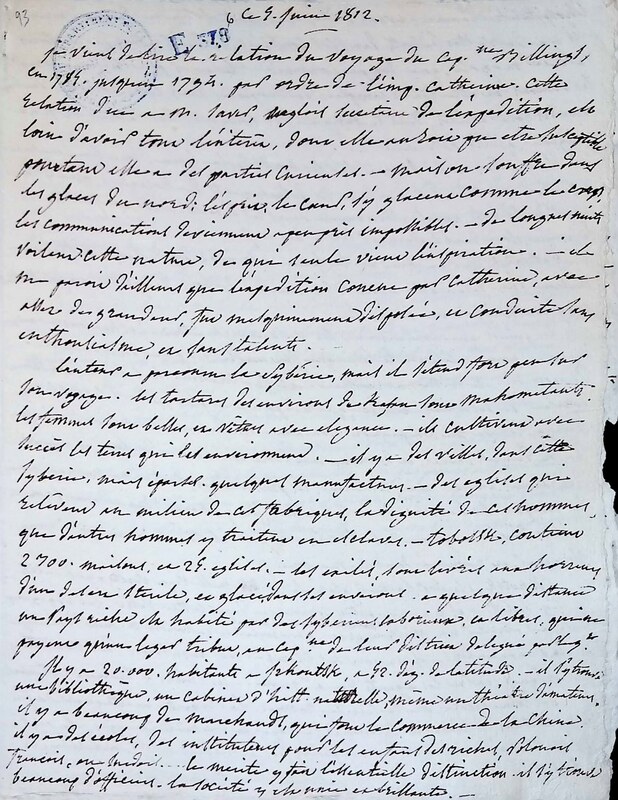 93
6 ce 9. juin 1812.
E, 373
je viens de lire la relation du voyage du cap.ne Billings,
en 1785. jusqu'en 1794. par ordre de l'imp. Catherine. Cette
relation due a M. Saver, anglois secretaire de l'expédition, est
loin d'avoir tout l'intérêt, dont elle auroit pu etre susceptible
pourtant elle a des parties curieuses. — mais on souffre dans
les glaces du nord; l'esprit, le cœur, s'y glacent comme le corps,
les communications deviennent a peu près impossibles. — de longues nuits
voilent cette nature, de qui seule vient l'inspiration. — il
me paroit d'ailleurs que l'expédition conçue par Catherine, avec
assez de grandeur, fut mesquinement disposée, et conduite sans
enthousiasme, et sans talents.
l'auteur a parcouru la Sybérie, mais il s'étend fort peu sur
son voyage. les tartares des environs de Kasan sont Mahometants.
les femmes sont belles, et vêtues avec elegance. — ils cultivent avec
succès les terres qui les environnent. — il y a des villes, dans cette
Syberie, mais éparses. quelques manufactures. — des eglises qui
relevent au milieu de ces fabriques, la dignité de ces hommes,
que d'autres hommes y traitent en esclaves. — tobolsk, contient
2700. maisons, et 25. eglises. — les exilés, sont livrés aux horreurs
d'un desert sterile, et glacé dans ses environs. a quelque distance
un pays riche est habité par des syberiens laborieux, et libres, qui ne
payent qu'un leger tribut, au cap.ne de leur district
il y a 20.000. habitants a jrkoutsk, a 52. dég. de latitude. — il s'y trouve
une bibliothèque, un cabinet d'hist. naturelle, même un théâtre d'amateurs.
il y a beaucoup de marchands, qui font le commerce de la Chine.
il y a des ecoles, des instituteurs pour les enfans des riches, polonois
françois, ou suedois... le merite y fait l'essentielle distinction. il s'y trouve
beaucoup d'officiers. la société y est unie et brillante. —